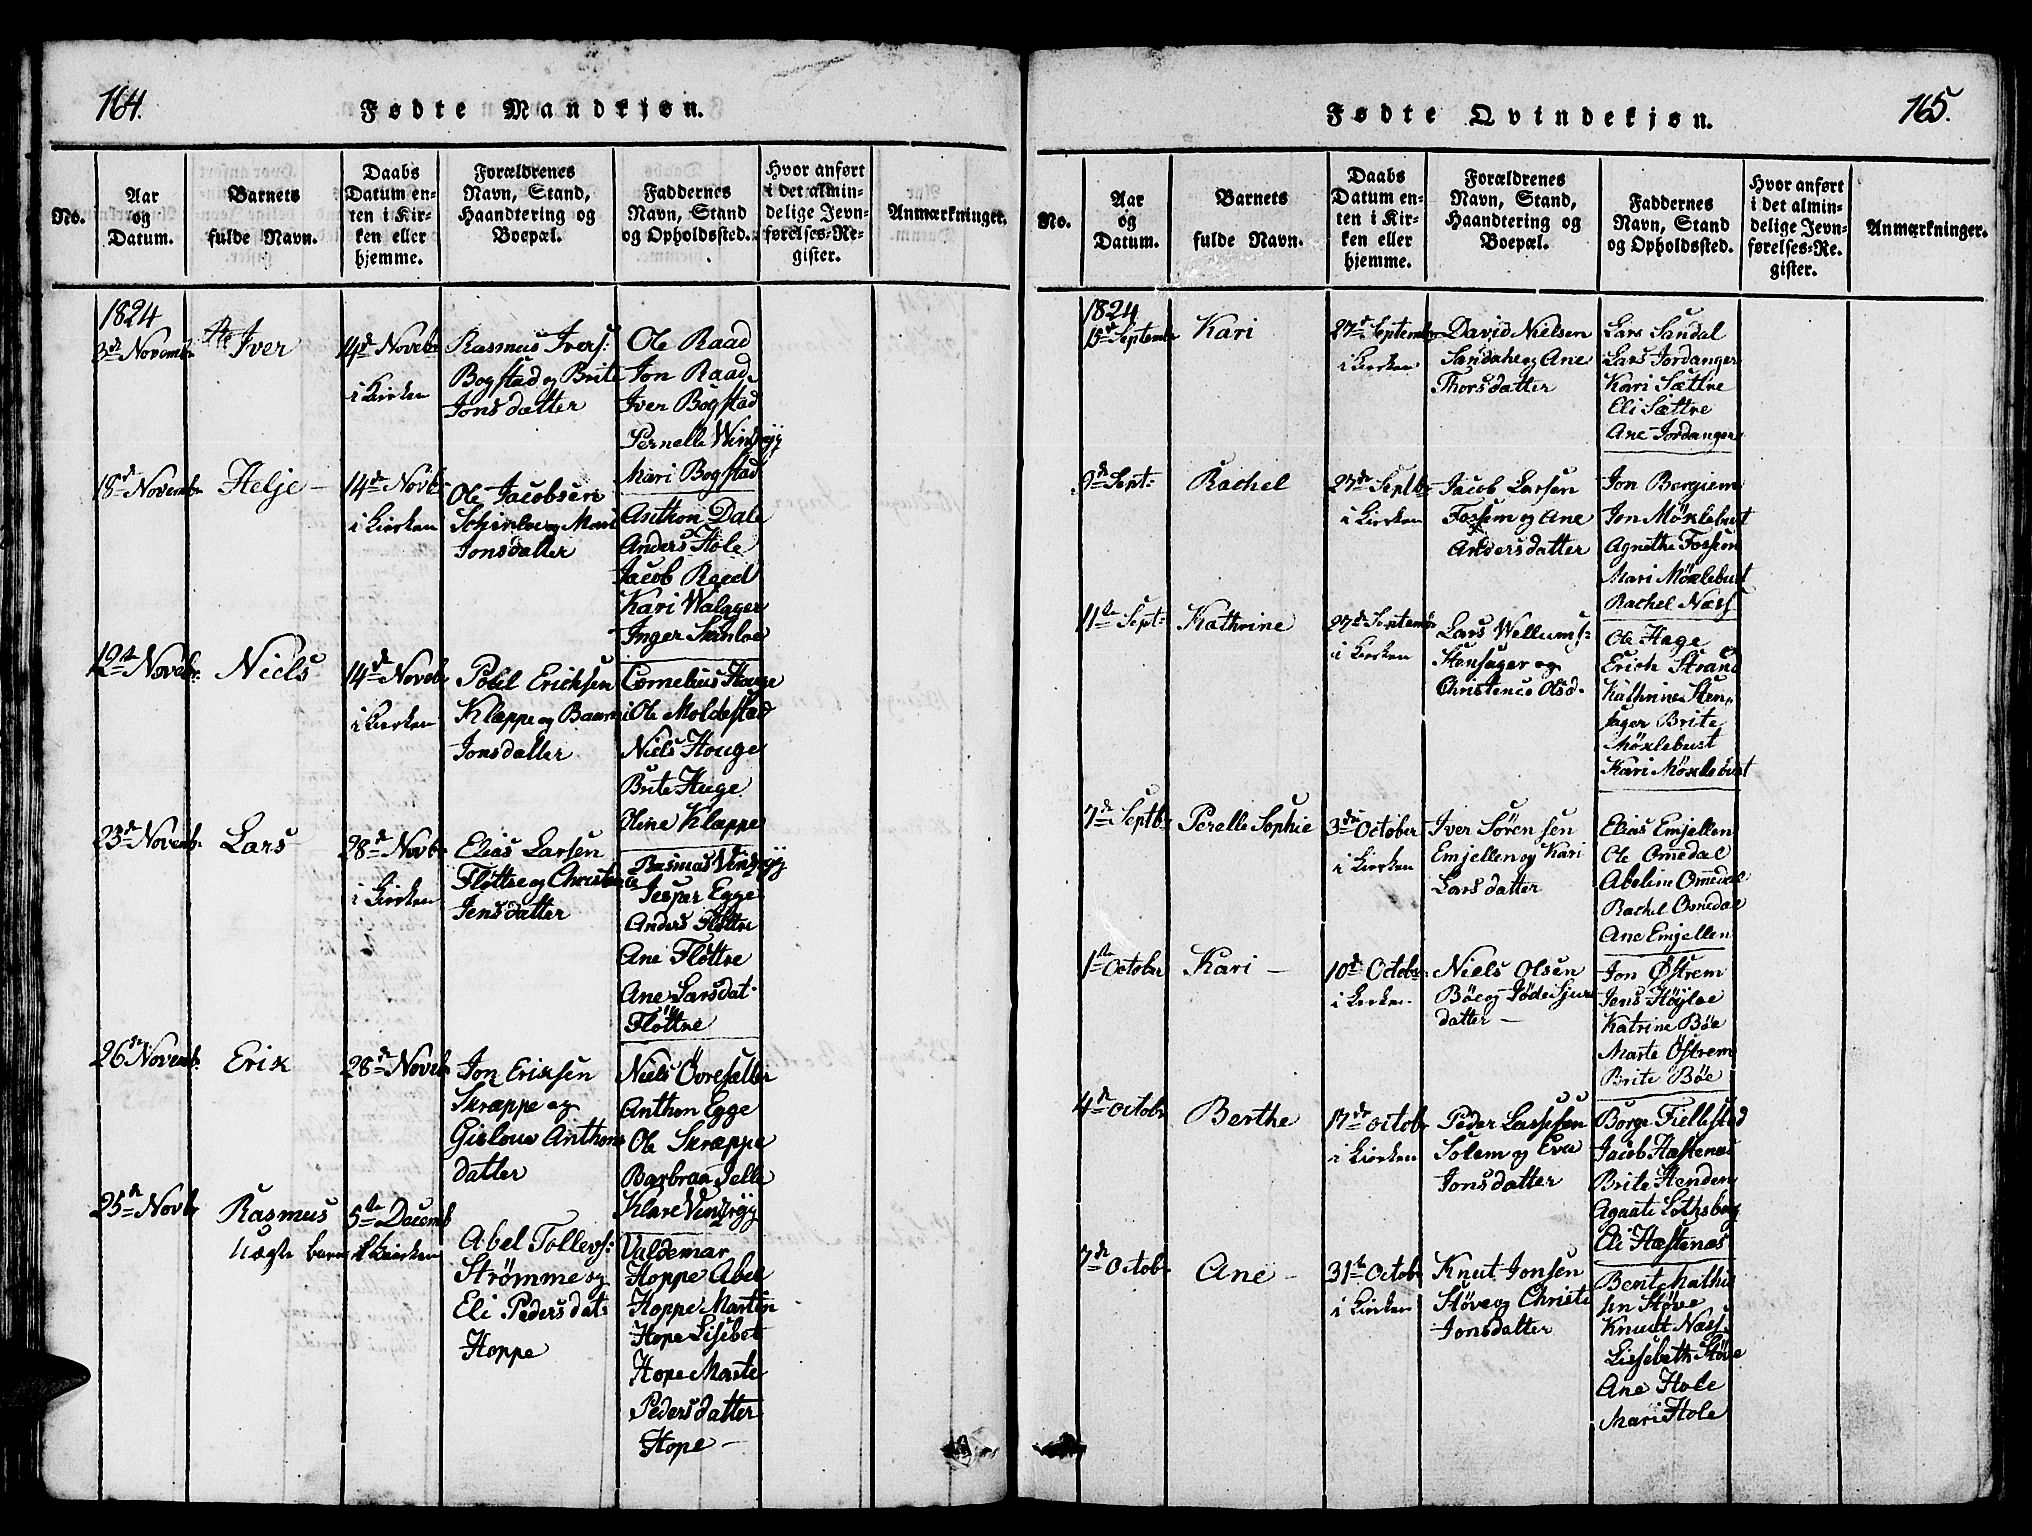 164.
Fødte Mandkjøn.
No.
Aar
og
Datum.
Barnets
fulde Navn.
Daabs
Datum en-
ten i Kir-
ken eller
hjemme.
Forældrenes
Navn, Stand,
Haandtering og
Boepæl.
Faddernes
Navn, Stand
og Opholdssted.
Hvor anført
i det almin-
delige Jevn-
førelses-Re-
gister.
Anmærkninger.
1824
3de Novembr
Iver
14de Novebr
i Kirken
Rasmus Ivers:
Bogstad og Brite
Jonsdatter
Ole Raad
Jon Raad
Iver Bogstad
Pernelle Windrøÿ
Mari Bogstad
18de Novembr
Helje
14de Novb
i Kirken
Ole Jacobsen
og Mari
Jonsdatter
Anthon Dale
Anders Hole
Jacob Raad
Kari Walager
Inger Skinloe
12te Novebr.
Niels
14de Novebr
i Kirken
Povel Ericksen
Klæppe og
Jonsdatter
Cornelius Hauge
Ole Moldestad
Niels Houge
Brite Huge
Oline Klappe
23de Novemb.
Lars
28de Novbr
i Kirken
Elias Larsen
Fløttre og Christen
Jensdatter
Rasmas Vindrøÿ
Jespar Egge
Anders Fløttre
Ane Fløttre
Ane Larsdat-
Fløttre
26de Novemb.
Erik
28de Novebr
Jon Eriksen
Skræppe og
Gislow Anthons
datter
Niels Övresætter
Anthon Egge
Ole Skræppe
Barbraa Jelle
Klare Vindrøÿ
25de Novbr
Rasmus
Uægte barn
5te Decemb
i Kirken
Abel Tollevs:
Strømme og
Eli Pedersdat:
Hoppe
Valdemar
Hoppe Abel
Hoppe Martin
Hope Lisebet
Hope Marte
Pedersdatter
Hope
165.
Fødte Qvindekjøn.
No.
Aar
og
Datum.
Barnets
fulde Navn.
Daabs
Datum en-
ten i Kir-
ken eller
hjemme.
Forældrenes
Navn, Stand,
Haandtering og
Boepæl.
Faddernes
Navn, Stand
og Opholdssted.
Hvor anført
i det almin-
delige Jevn-
førelses-Re-
gister.
Anmærkninger.
1824
15de Septembr
Kari
27de Septembr
i Kirken
David Nielsen
Sandahl og Ane
Thorsdatter
Lars Sandal
Lars Jordanger
Kari Sættre
Eli Sættre
Ane Jordanger
9de Sept:
Rachel
27de Septbr
i Kirken
Jacob Larsen
Fossem og Ane
Andersdatter
Jon Bergiem
Jon Möxlebust
Agnethe Fossem
Mari Möxlebust
Rachel Næss
11te Sept:
Kathrine
27de Septembr
i Kirken
Lars Wellums:
Stensager og
Christence Olsd-
Ole Hage
Erich Strand
Kathrine Sten-
sager Brite
Möxlebust
Kari Möxlebust
7de Septbr
Perelle Sophie
3die October
i Kirken
Iver Sörensen
Emjellen og Kari
Larsdatter
Elias Emjellen
Ole Omedal
Abelin Omedal
Rachel Omedal
Ane Emjellen
1ste October
Kari
10de Octobr
i Kirken
Niels Olsen
Böe og Jöde Sjurs
datter
Jon Østrem
Jens Höÿloe
Katrine Böe
Marte Östrem
Brite Böe
4de Octobr
Berthe
17de Octobr
i Kirken
Peder Lassesen
Solem og Eva
Jonsdatter
Börge Fiellestad
Jacob Hæstenæs
Brite Henden
Agaate Lothsberg
Eli Hæstenæs
7de Octobr
Ane
31te Octobr
i Kirken
Knut Jonsen
Støve og Christi
Jonsdatter
Bent Mathi
sen Støve
Knut Næss
Lissebeth Støve
Ane Hole
Mari Hole